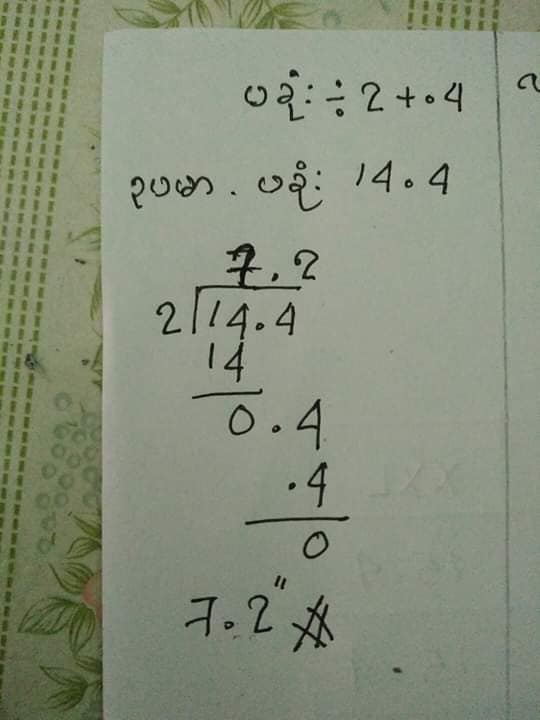 ပခုံး ÷ 2 + .4
ဥပမာ . ပခုံး 14.4
7.2
2 14.4
14
0.4
.4
0
7.2"